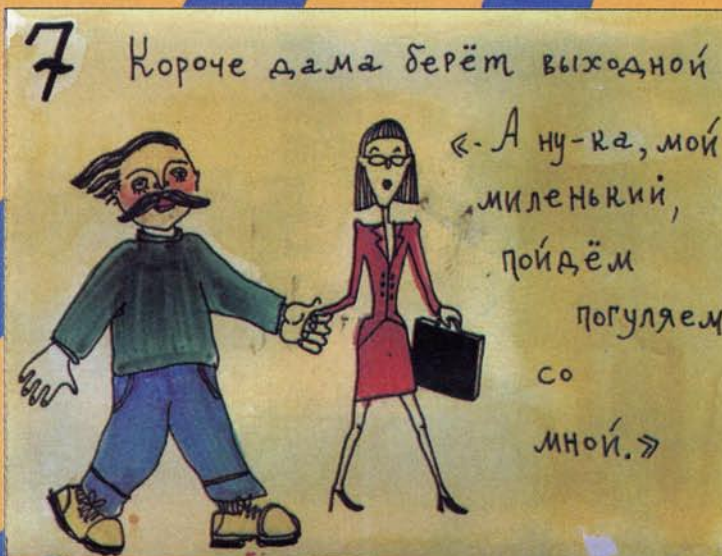 7 Короче дама берёт выходной
«- А ну-ка, мой
миленький,
пойдём
погуляем
со
мной.»